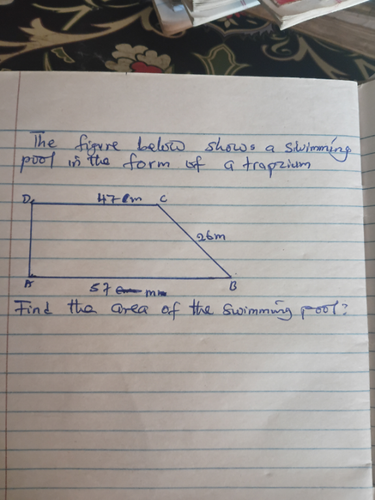 The figure below shows a swimming
pool in the form of a trapzium
D 47 m C
26m
A 57 m B
Find the area of the swimming pool?